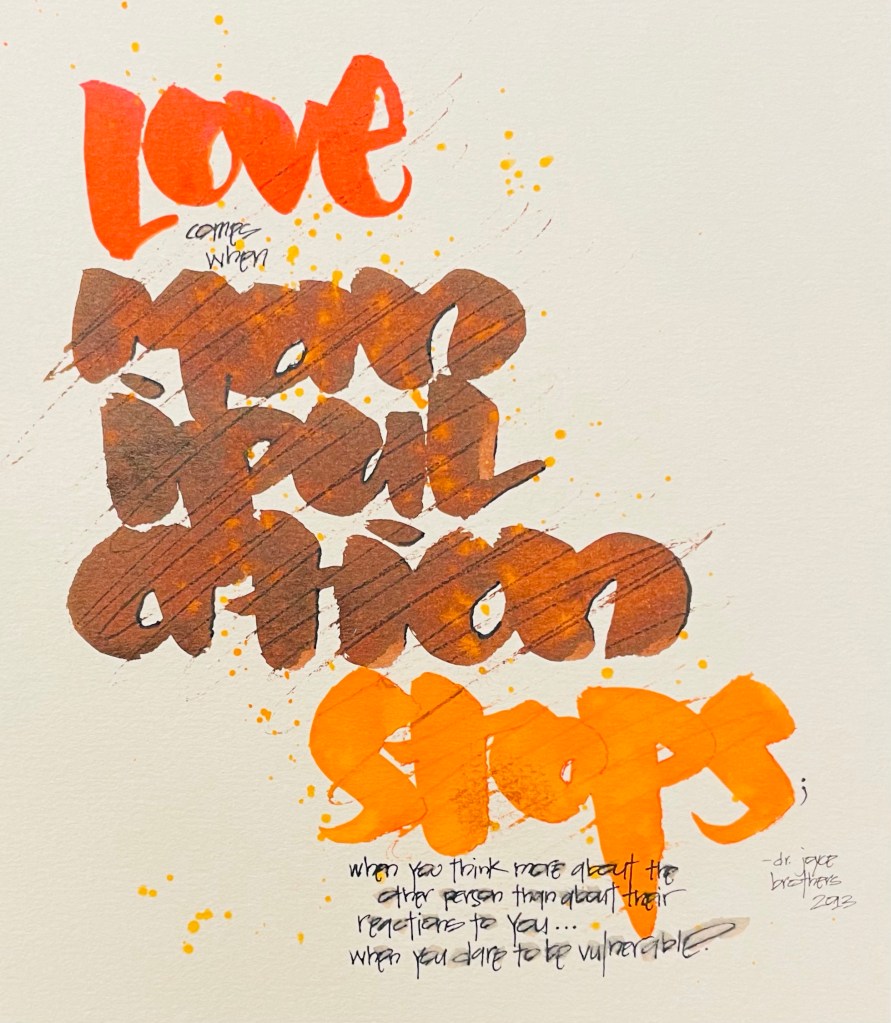 Love
comes
when
man
ipul
ation
stops;
when you think more about the
other person than about their
reactions to you...
when you dare to be vulnerable.
-dr. joyce
brothers
2013